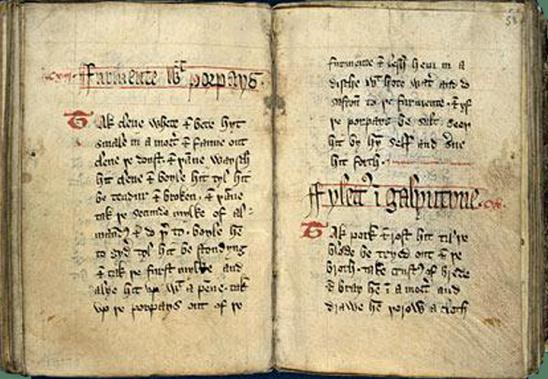 Furmente wt porpays.
Tak clene whete & bete hyt
smale in a mort' & fanne out
clene þe doust, & þanne waysch
hit clene & boyle hit tyl hit
be tendur & broken. & þanne
tak þe secunde mylke of al-
mand & do þ' to. boyle hē
to gyd' tyl hit be stondyng
& tak þe furst mylke and
alye hit vp wt a penne. tak
vp þe porpays out of þe
furmente & lesh hem in a
dische wt hote wat' and do
safron to þe furmente. & ȝif
þe porpays be salt. seeþ
hit by hȳ self and s'ue
hit forth.
ffylett' ī galyntyne.
Tak pork & rost hit til þe
blode be tryed out & þe
broth. take crust' of brede
& bray hē ī a mort' and
drawe hē þorow a cloth